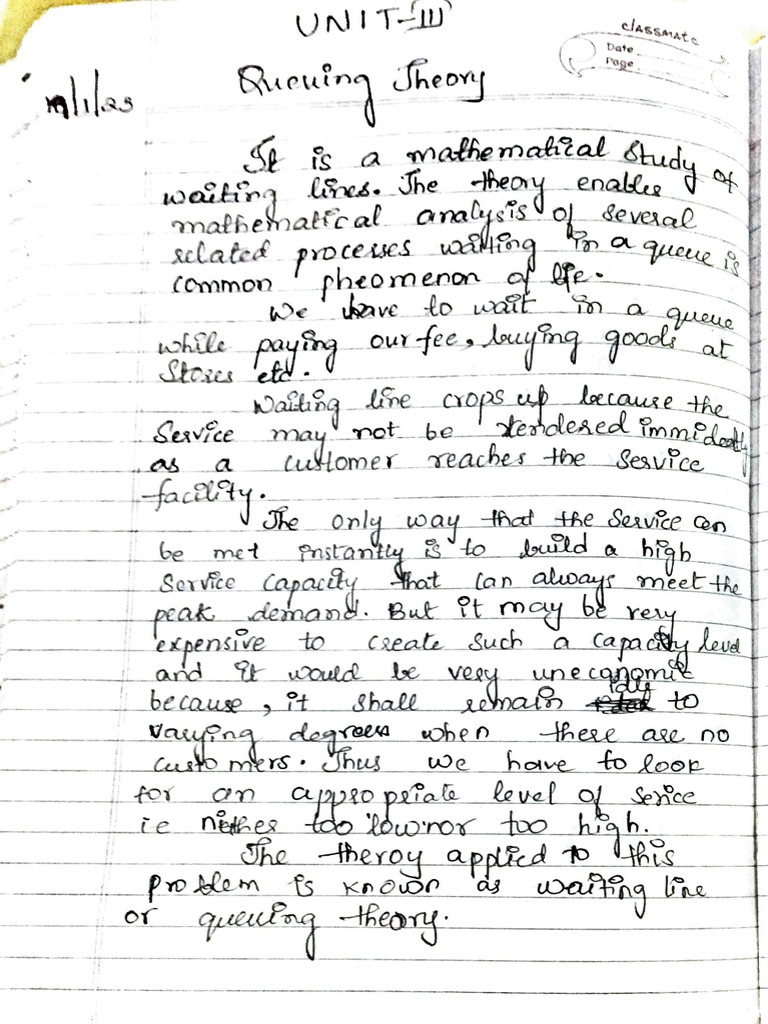 UNIT-III
classmate
Date
Page
19/1/23
Queuing Theory
It is a mathematical study of
waiting lines. The theory enables
mathematical analysis of several
related processes waiting in a queue is
common pheomenon of life.
We have to wait in a queue
while paying our fee, buying goods at
Stores etc.
Waiting line crops up because the
Service may not be rendered immideatly
as a customer reaches the service
facility.
The only way that the service can
be met instantly is to build a high
Service capacity that can always meet the
peak demand. But it may be very
expensive to create such a capacity level
and it would be very uneconomic
because, it shall remain idle to
varying degrees when there are no
customers. Thus we have to look
for an appropriate level of serice
ie niether too low nor too high.
The theroy applied to this
problem is known as waiting line
or queuing theory.